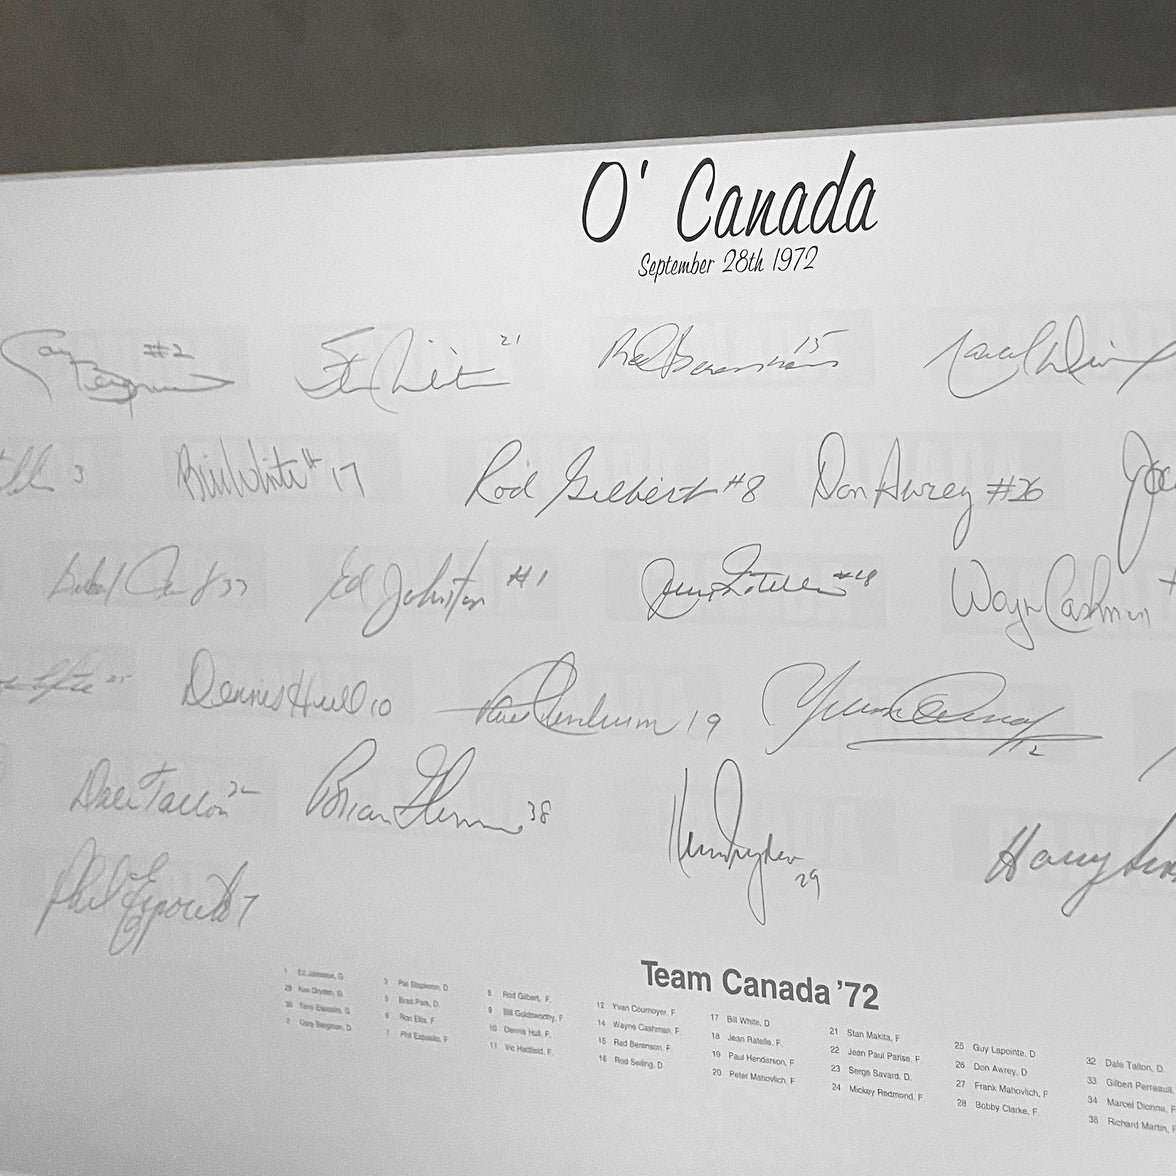 O' Canada
September 28th 1972
#2 21 15
3 Bill White # 17 Rod Gilbert #8 Don Awrey #26
33 Ed Johnston #1 Wayne Cashman
Dennis Hull 10 Paul Henderson 19 12
Dale Tallon 32 Brian Glennie 38 Ken Dryden 29 Harry
Phil Esposito 7
Team Canada '72
1 Ed Johnston, G.
29 Ken Dryden, G.
35 Tony Esposito, G.
2 Gary Bergman, D.
3 Pat Stapleton, D
5 Brad Park, D.
6 Ron Ellis, F.
7 Phil Esposito, F
8 Rod Gilbert, F.
9 Bill Goldsworthy, F
10 Dennis Hull, F.
11 Vic Hadfield, F.
12 Yvan Cournoyer, F.
14 Wayne Cashman, F.
15 Red Berenson, F.
16 Rod Seiling, D
17 Bill White, D
18 Jean Ratelle, F.
19 Paul Henderson, F
20 Peter Mahovlich, F
21 Stan Makita, F
22 Jean Paul Parise, F
23 Serge Savard, D.
24 Mickey Redmond, F
25 Guy Lapointe, D
26 Don Awrey, D.
27 Frank Mahovlich, F
28 Bobby Clarke, F.
32 Dale Tallon, D.
33 Gilbert Perreault,
34 Marcel Dionne, F
36 Richard Martin, F